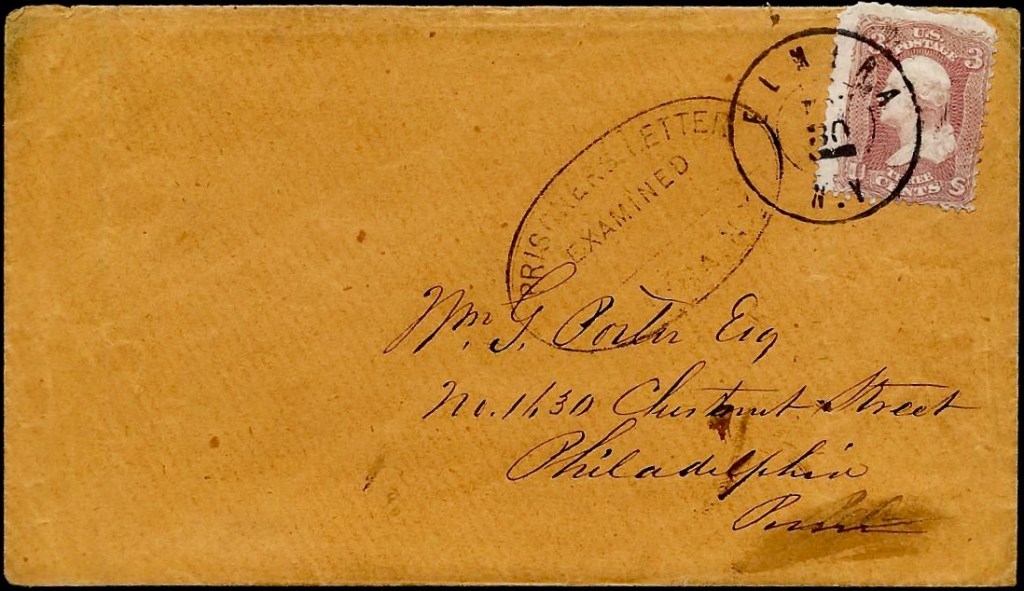 3 U.S. 3
POSTAGE
THREE
CENTS
ELMIRA
30
N.Y.
PRISONERS LETTER
EXAMINED
N.Y.
Wm. G. Porter Esq
No. 1630 Chestnut Street
Philadelphia
Penn